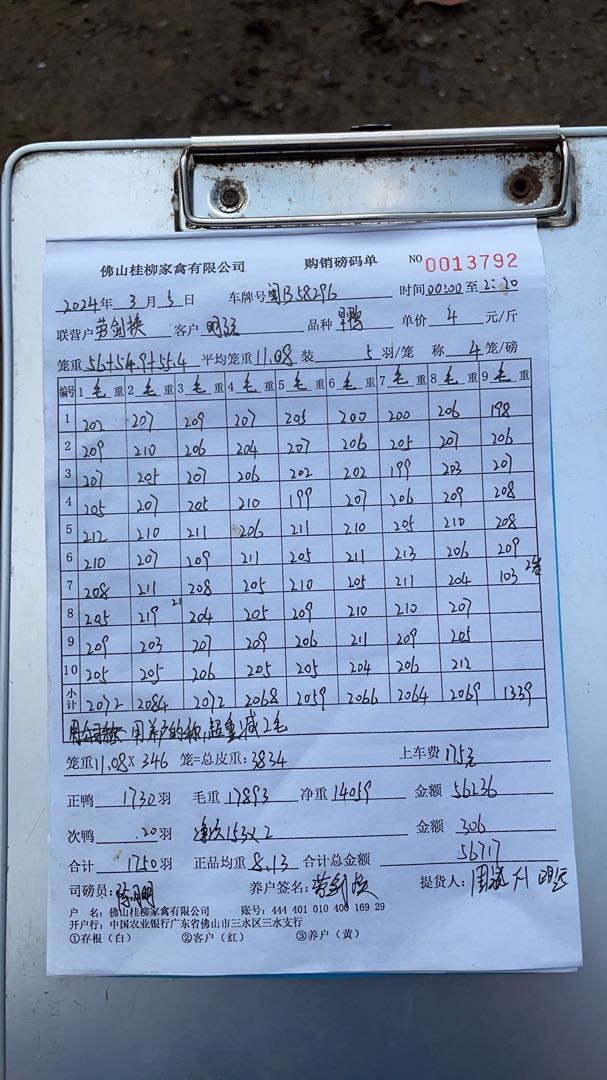 佛山桂柳家禽有限公司 购销磅码单 NO 0013792
2024年 3月 5日 车牌号 闽B58296 时间 00:00 至 2:20
联营户 劳剑换 客户 品种 单价 4 元/斤
笼重 56+54.9+55.4 平均笼重 11.08 装 5 羽/笼 称 4 笼/磅
编号 1 毛 重 2 毛 重 3 毛 重 4 毛 重 5 毛 重 6 毛 重 7 毛 重 8 毛 重 9 毛 重
1 202 207 209 207 205 200 200 206 198
2 209 210 206 204 207 206 205 207 206
3 207 205 207 206 202 202 199 203 207
4 205 207 205 210 199 207 206 209 208
5 212 210 211 206 211 210 205 210 208
6 210 207 209 211 205 211 213 206 209
7 208 211 208 205 210 205 211 204 103 2笼
8 205 219 21 204 205 209 210 210 207
9 209 203 207 209 206 211 209 205
10 205 205 206 205 205 204 206 212
小计 2072 2084 2072 2068 2059 2066 2064 2069 1339
用养户的称, 超重减2毛
笼重 11.08 × 346 笼=总皮重: 3834 上车费 175元
正鸭 1730 羽 毛重 17893 净重 14059 金额 56236
次鸭 20 羽 净次153×2 金额 306
合计 1750 羽 正品均重 8.13 合计总金额 56717
司磅员: 养户签名: 劳剑换 提货人:
户 名: 佛山桂柳家禽有限公司 账号: 444 401 010 400 169 29
开户行: 中国农业银行广东省佛山市三水区三水支行
①存根（白） ②客户（红） ③养户（黄）